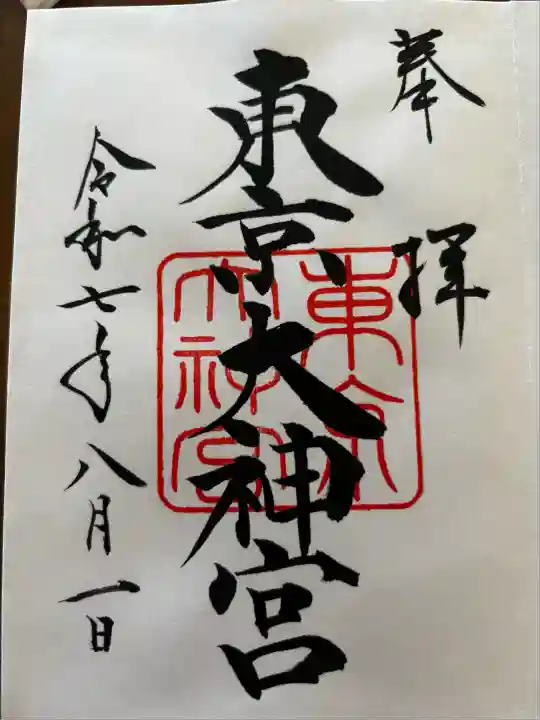 奉拝
東京大神宮
令和七年八月一日
東京大神宮